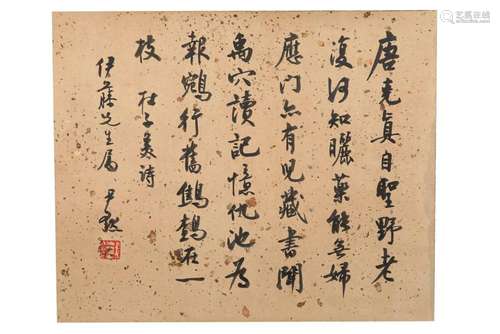 唐堯眞自聖野老
復何知曬藥能无婦
應门亦有兒藏書聞
禹穴讀記憶仇池为
報鵷行舊鷦鷯在一
枝 杜子美詩
伊藤先生属 尹默
艺狐在线